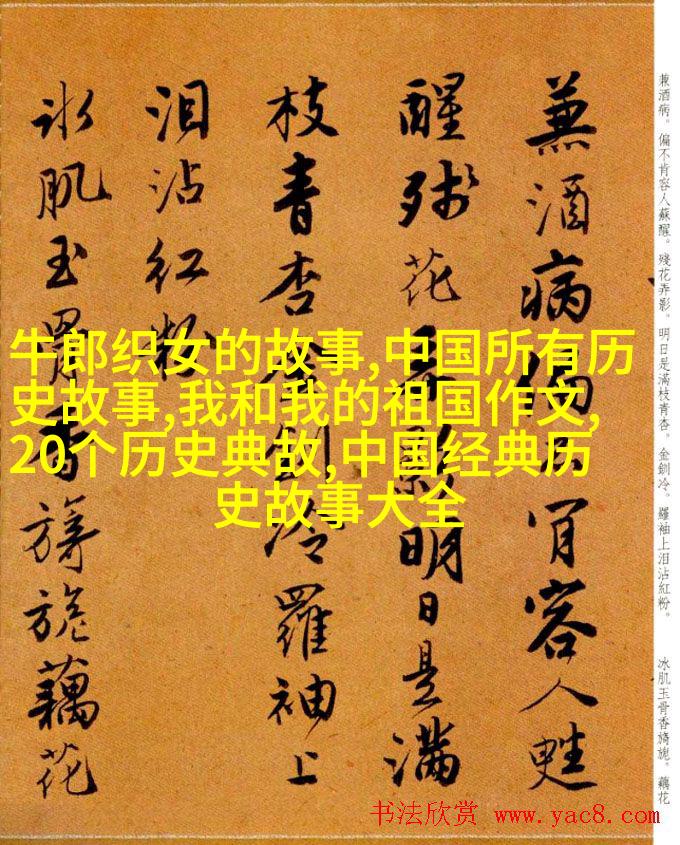 牛郎织女的故事,中国所有历
史故事,我和我的祖国作文,
20个历史典故,中国经典历
史故事大全
兼酒病偏不肯容人甦
醒殘花弄影明日是滿
枝青杏金釧冷羅袖上
泪沾紅粉
冰肌玉骨香旖旎藕花
兼酒病。偏不肯容人蘇醒。殘花弄影。明日是滿枝青杏。金釧冷。羅袖上泪沾紅粉。
冰肌玉骨香旖旎。藕花
书法欣赏 www.yac8.com